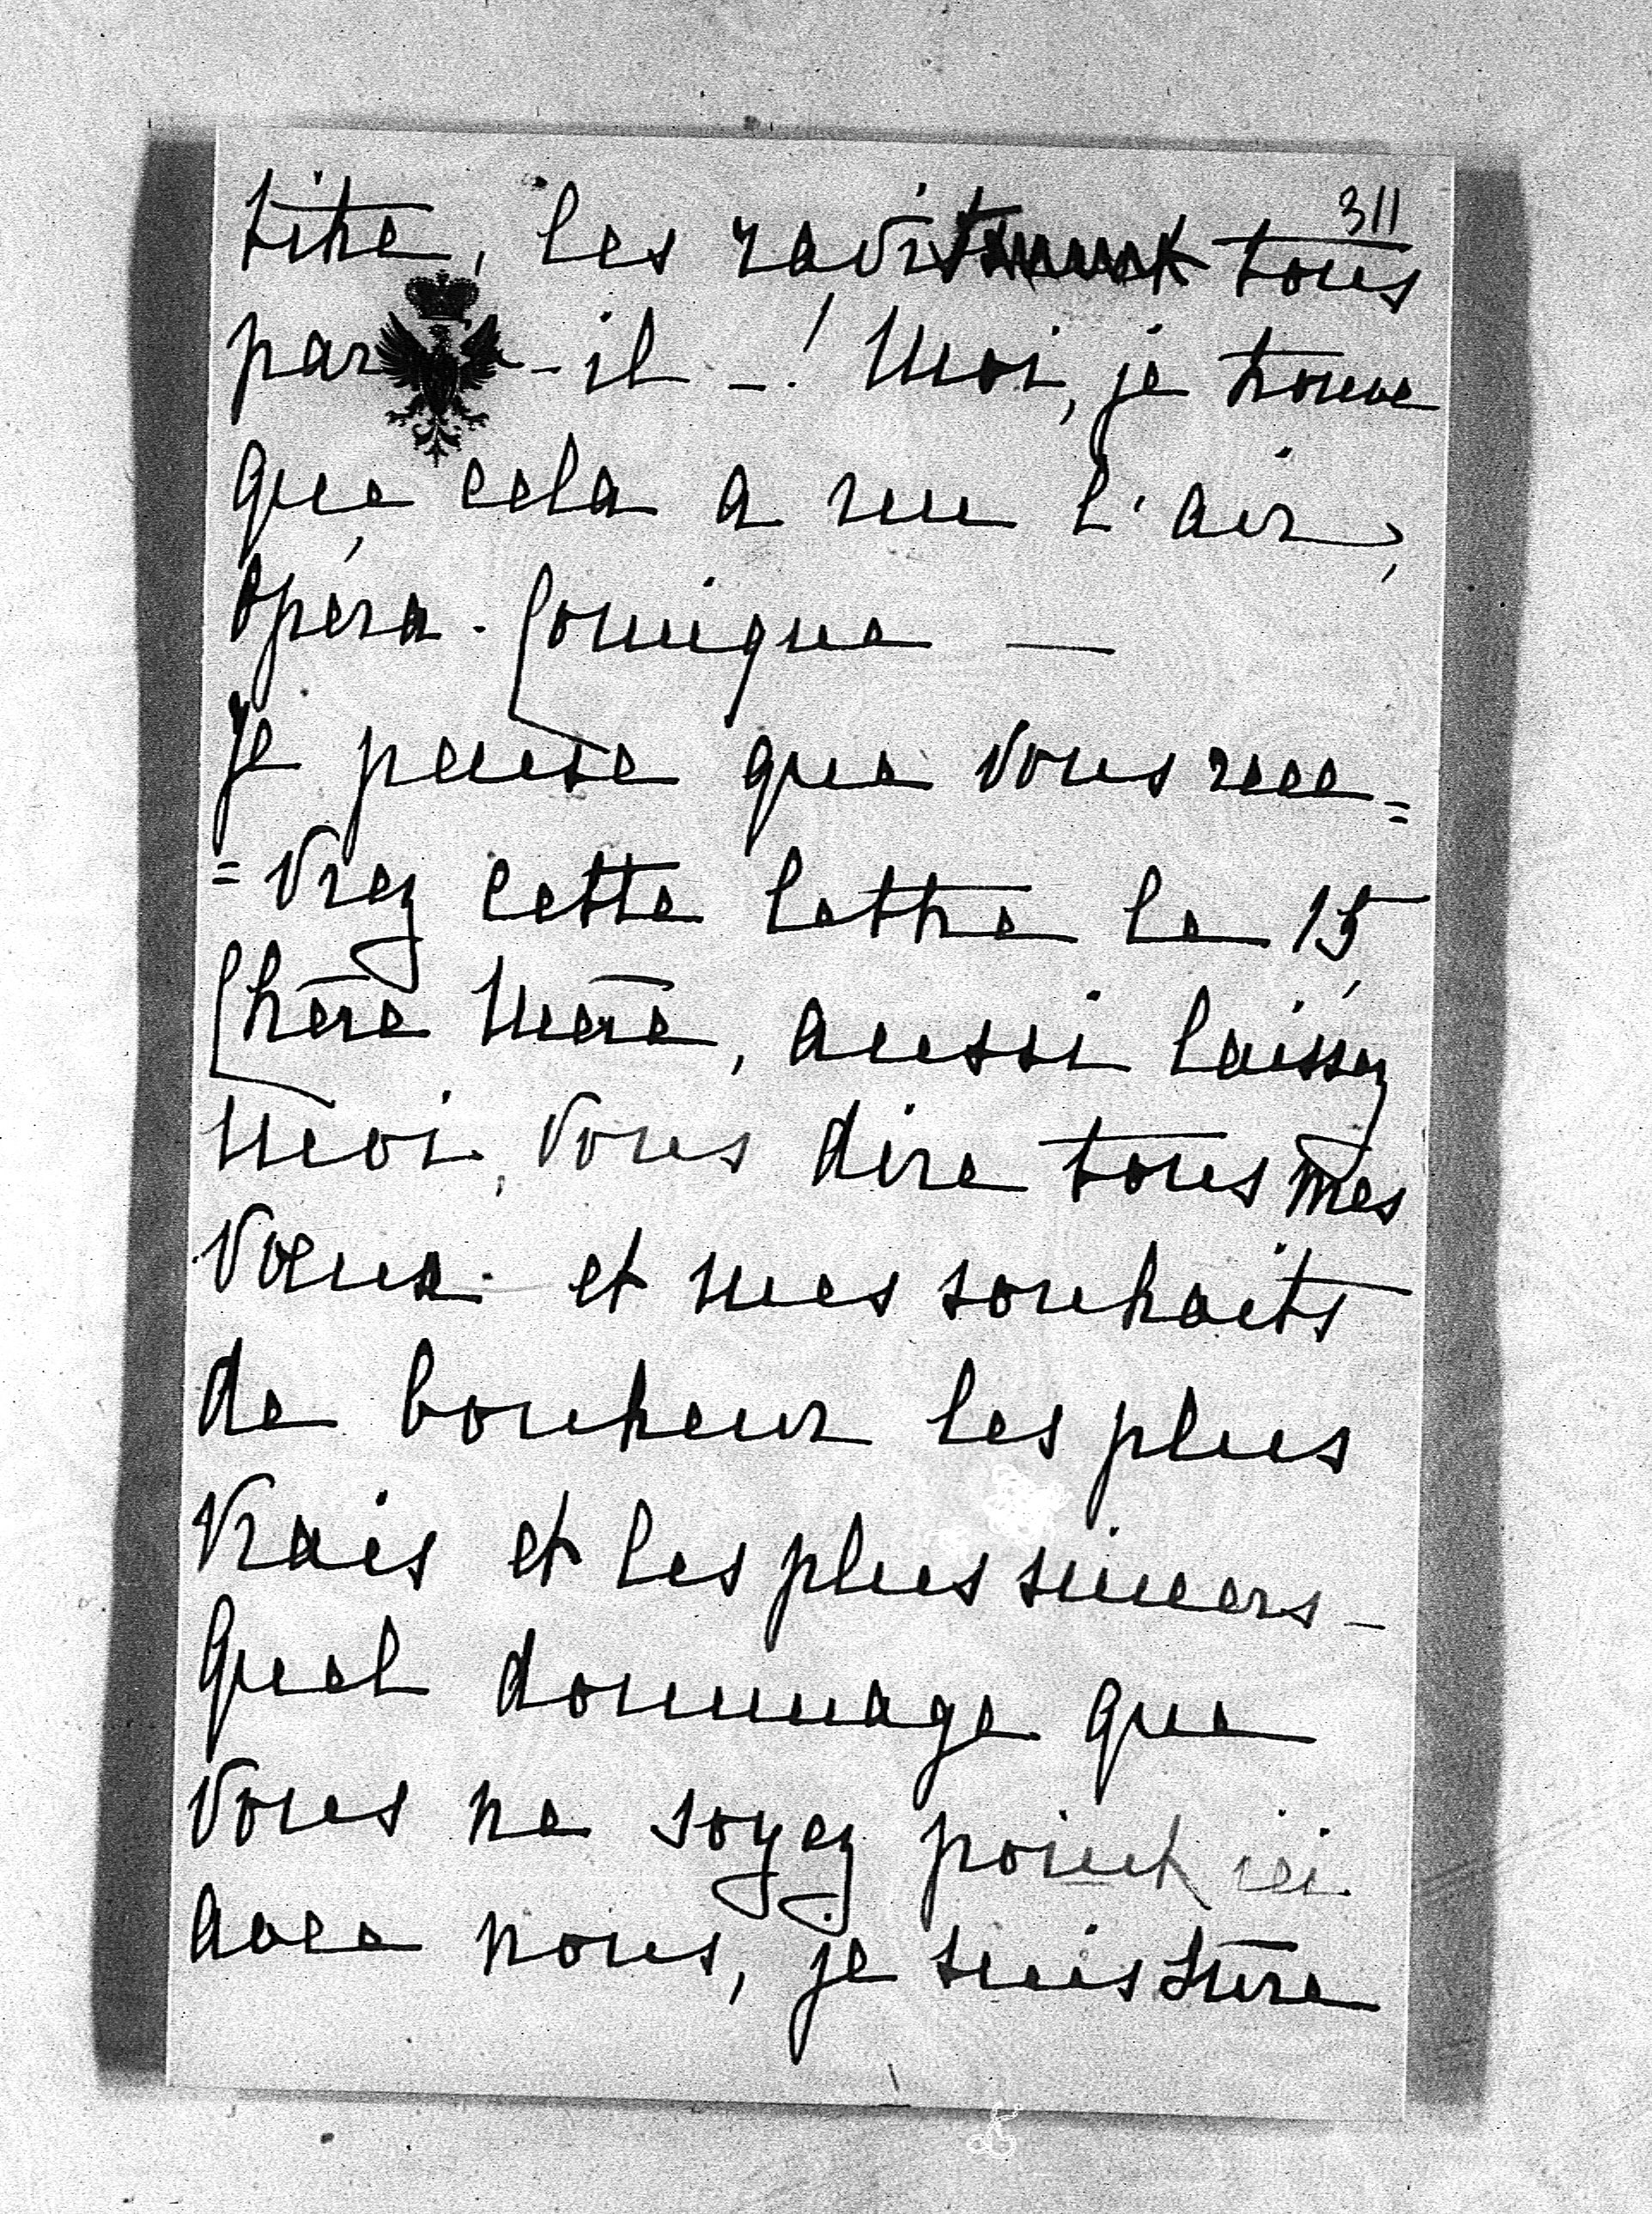 311
titre, les ravit tous
par -il -! Moi, je trouve
que cela a un l'air,
Opéra-Comique —
Je pense que vous rece=
=vrez cette lettre le 15
Chère Mère, aussi laissez
moi, vous dire tous mes
voeux et mes souhaits
de bonheur les plus
vrais et les plus sincers -
Quel dommage que
vous ne soyez point ici
avec nous, je suis sûre